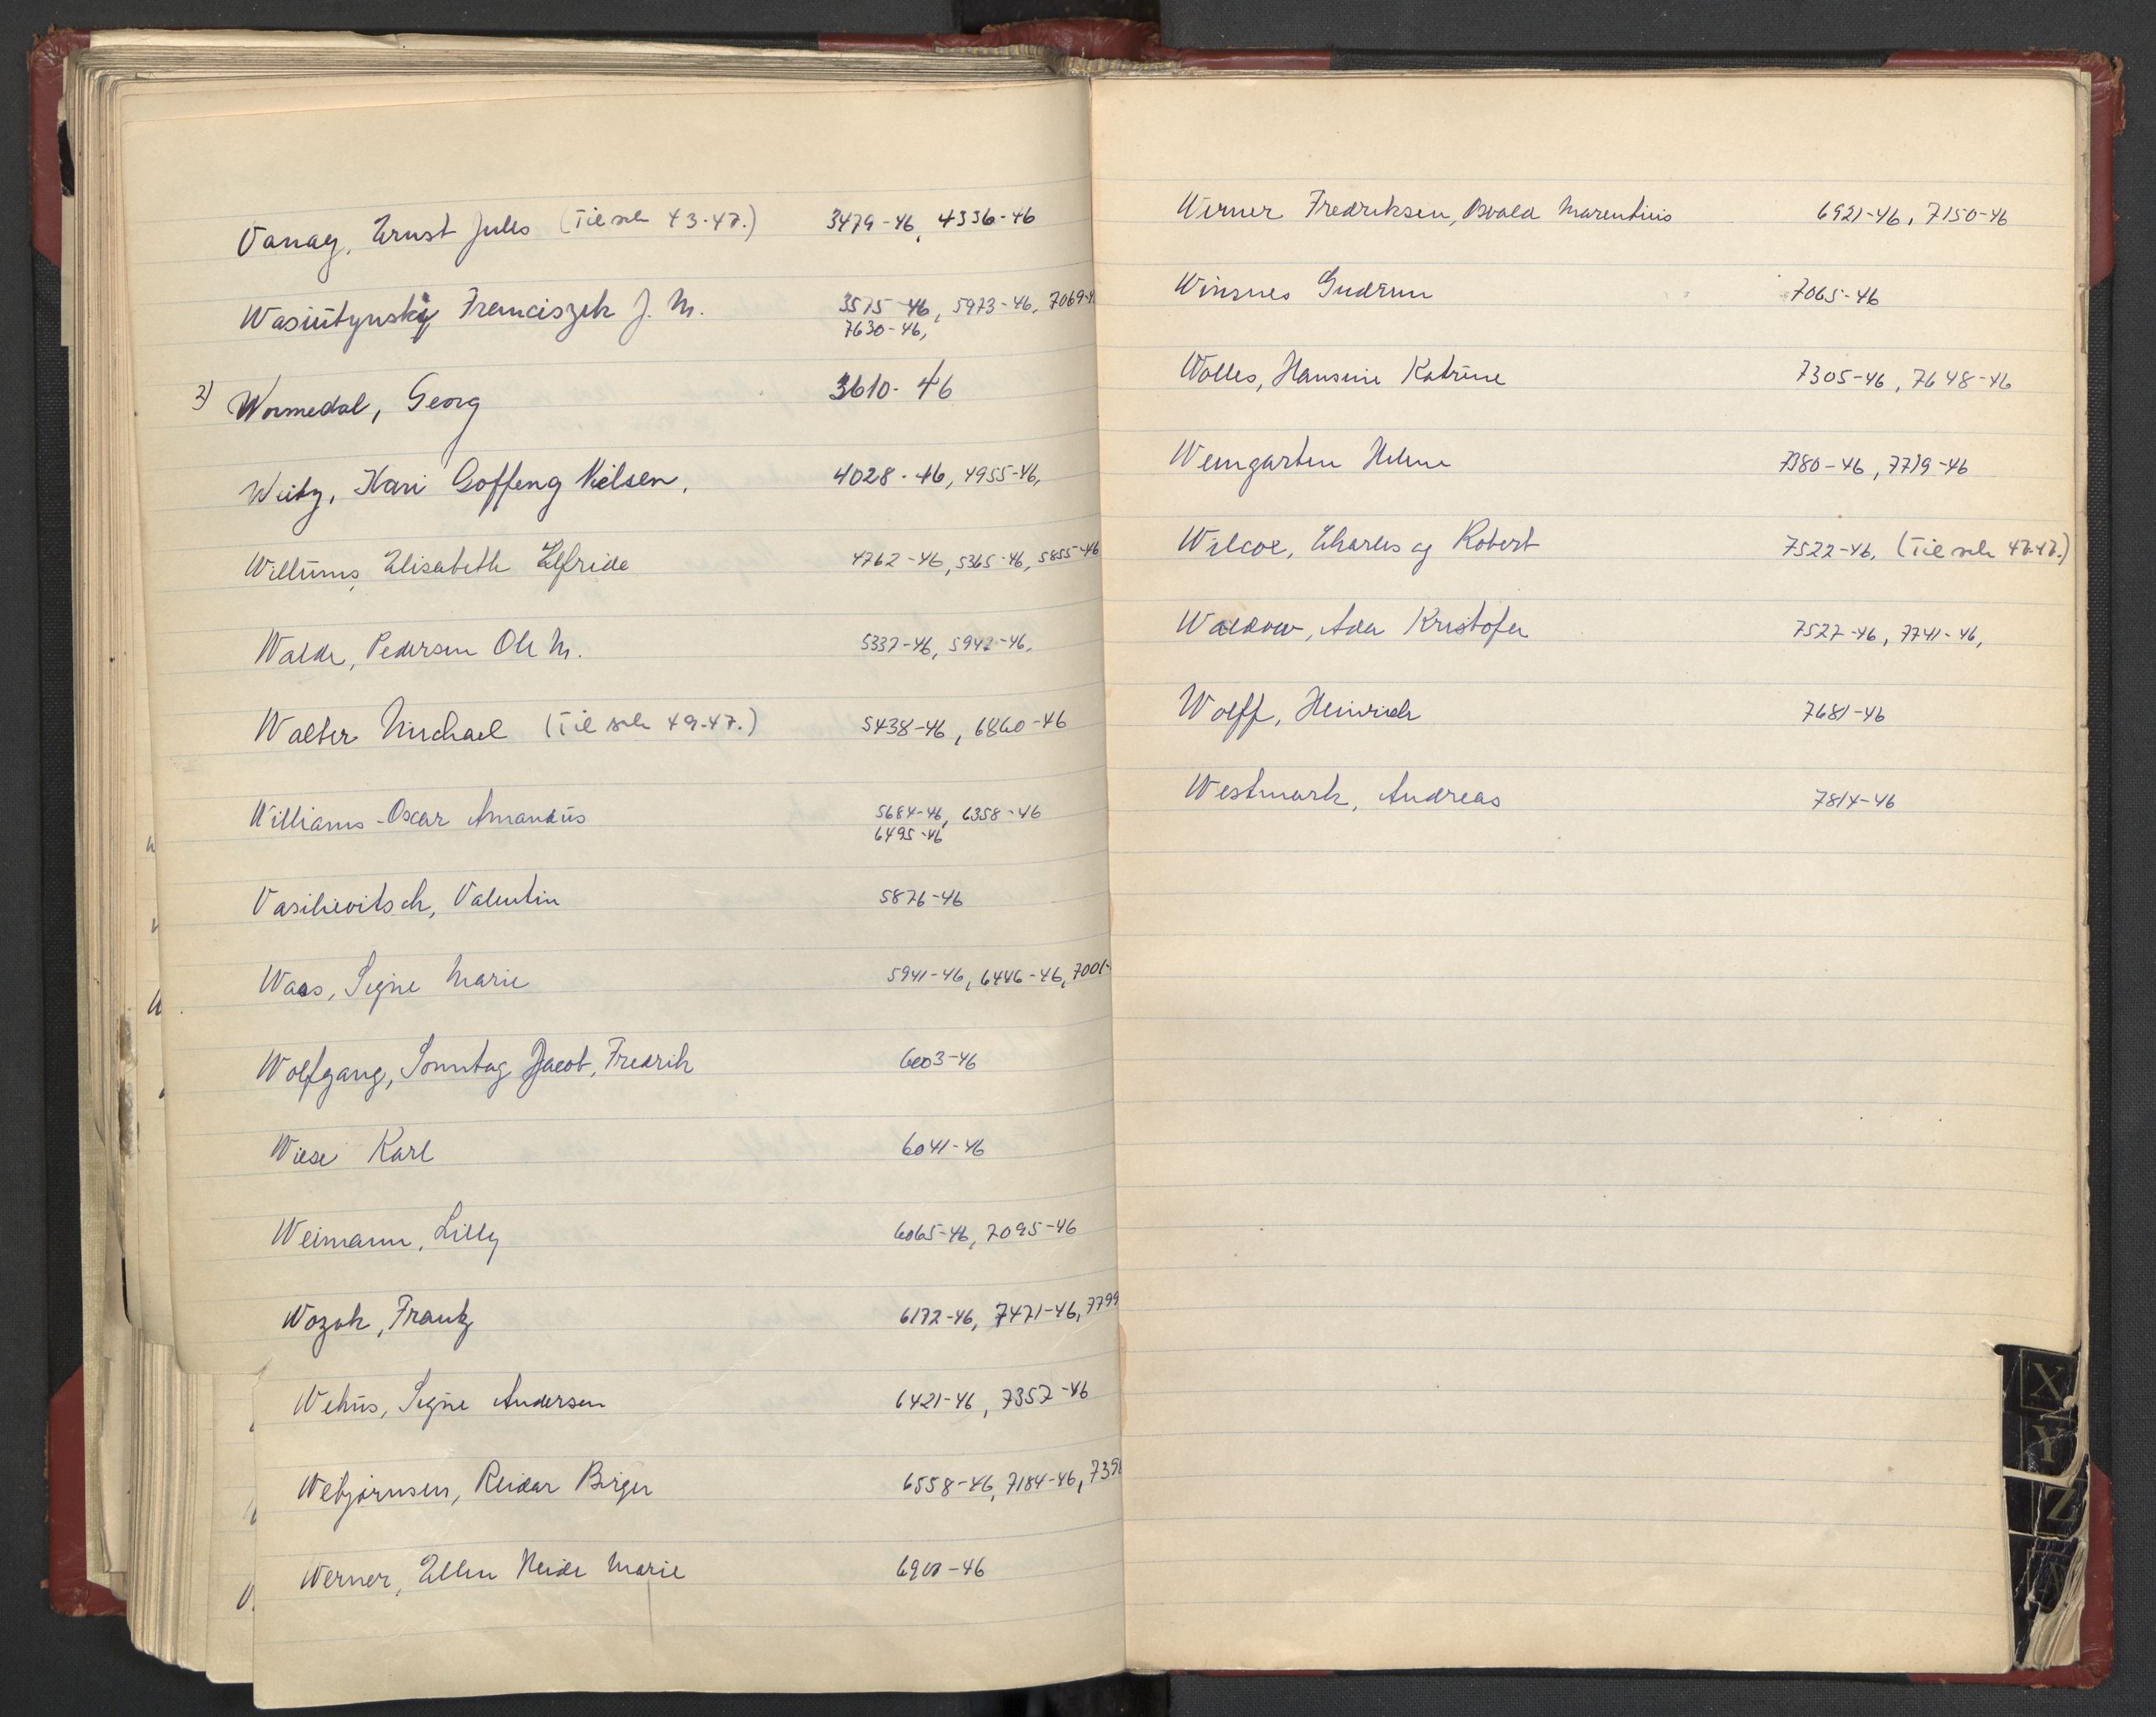 Vanag, Ernst Jules (Til sak 43-47.) 3479-46, 4336-46
Wasiutynsky Franciszek J. M. 3575-46, 5973-46, 7069-4
7630-46,
2) Wormedal, Georg 3610-46
Weitz, Kari Goffeng Nielsen, 4028-46, 4955-46,
Willums, Elisabeth Elfride 4762-46, 5365-46, 5855-46
Walde, Pedersen Ole M. 5337-46, 5942-46,
Walter Michael (Til sak 49-47.) 5438-46, 6860-46
Williams-Oscar Amandus 5684-46, 6358-46
6495-46
Vasilievitsch, Valentin 5876-46
Waas, Signe Marie 5941-46, 6446-46, 7001-
Wolfgang, Sonntag Jacob, Fredrik 6003-46
Wiese Karl 6041-46
Weimann, Lilly 6065-46, 7095-46
Wozak, Frantz 6172-46, 7471-46, 7799
Wehus, Signe Andersen 6421-46, 7357-46
Webjørnsen, Reidar Birger 6558-46, 7184-46, 739
Werner, Ellen Heide Marie -46
Werner Fredriksen, Osvald Marentius 6921-46, 7150-46
Winsnes Gudrun 7065-46
Wolles, Hansine Katrine 7305-46, 7648-46
Weingarten Helene 7380-46, 7719-46
Wilcox, Charles og Robert 7522-46, (Til sak 47-47.)
Waldow, Ada Kristofa 7527-46, 7741-46,
Wolff, Heinrich 7681-46
Westmark, Andreas 7814-46
X
Y
Z